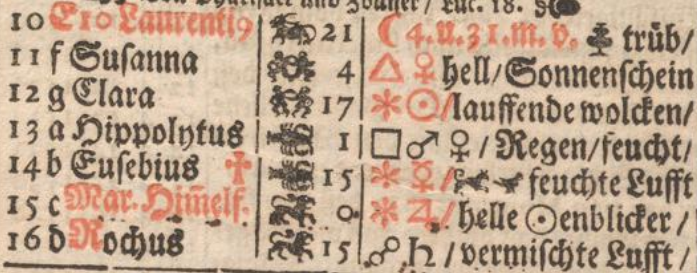 Pharisäer und Zöllner / Luc. 18.
10 E 10 Laurenti9 21 ☾ 4. u. 31. m. v. trüb/
11 f Susanna 4 △ ♀ hell/Sonnenschein
12 g Clara 17 ✶ ☉/lauffende wolcken/
13 a Hippolytus 1 □ ♂ ♀ / Regen/feucht/
14 b Eusebius ✝ 15 ✶ ☿/ feuchte Lufft
15 c Mar. Him̃elf. 0 ✶ ♃/ helle ☉enblicker /
16 d Rochus 15 ☍ ♄ / vermischte Lufft /